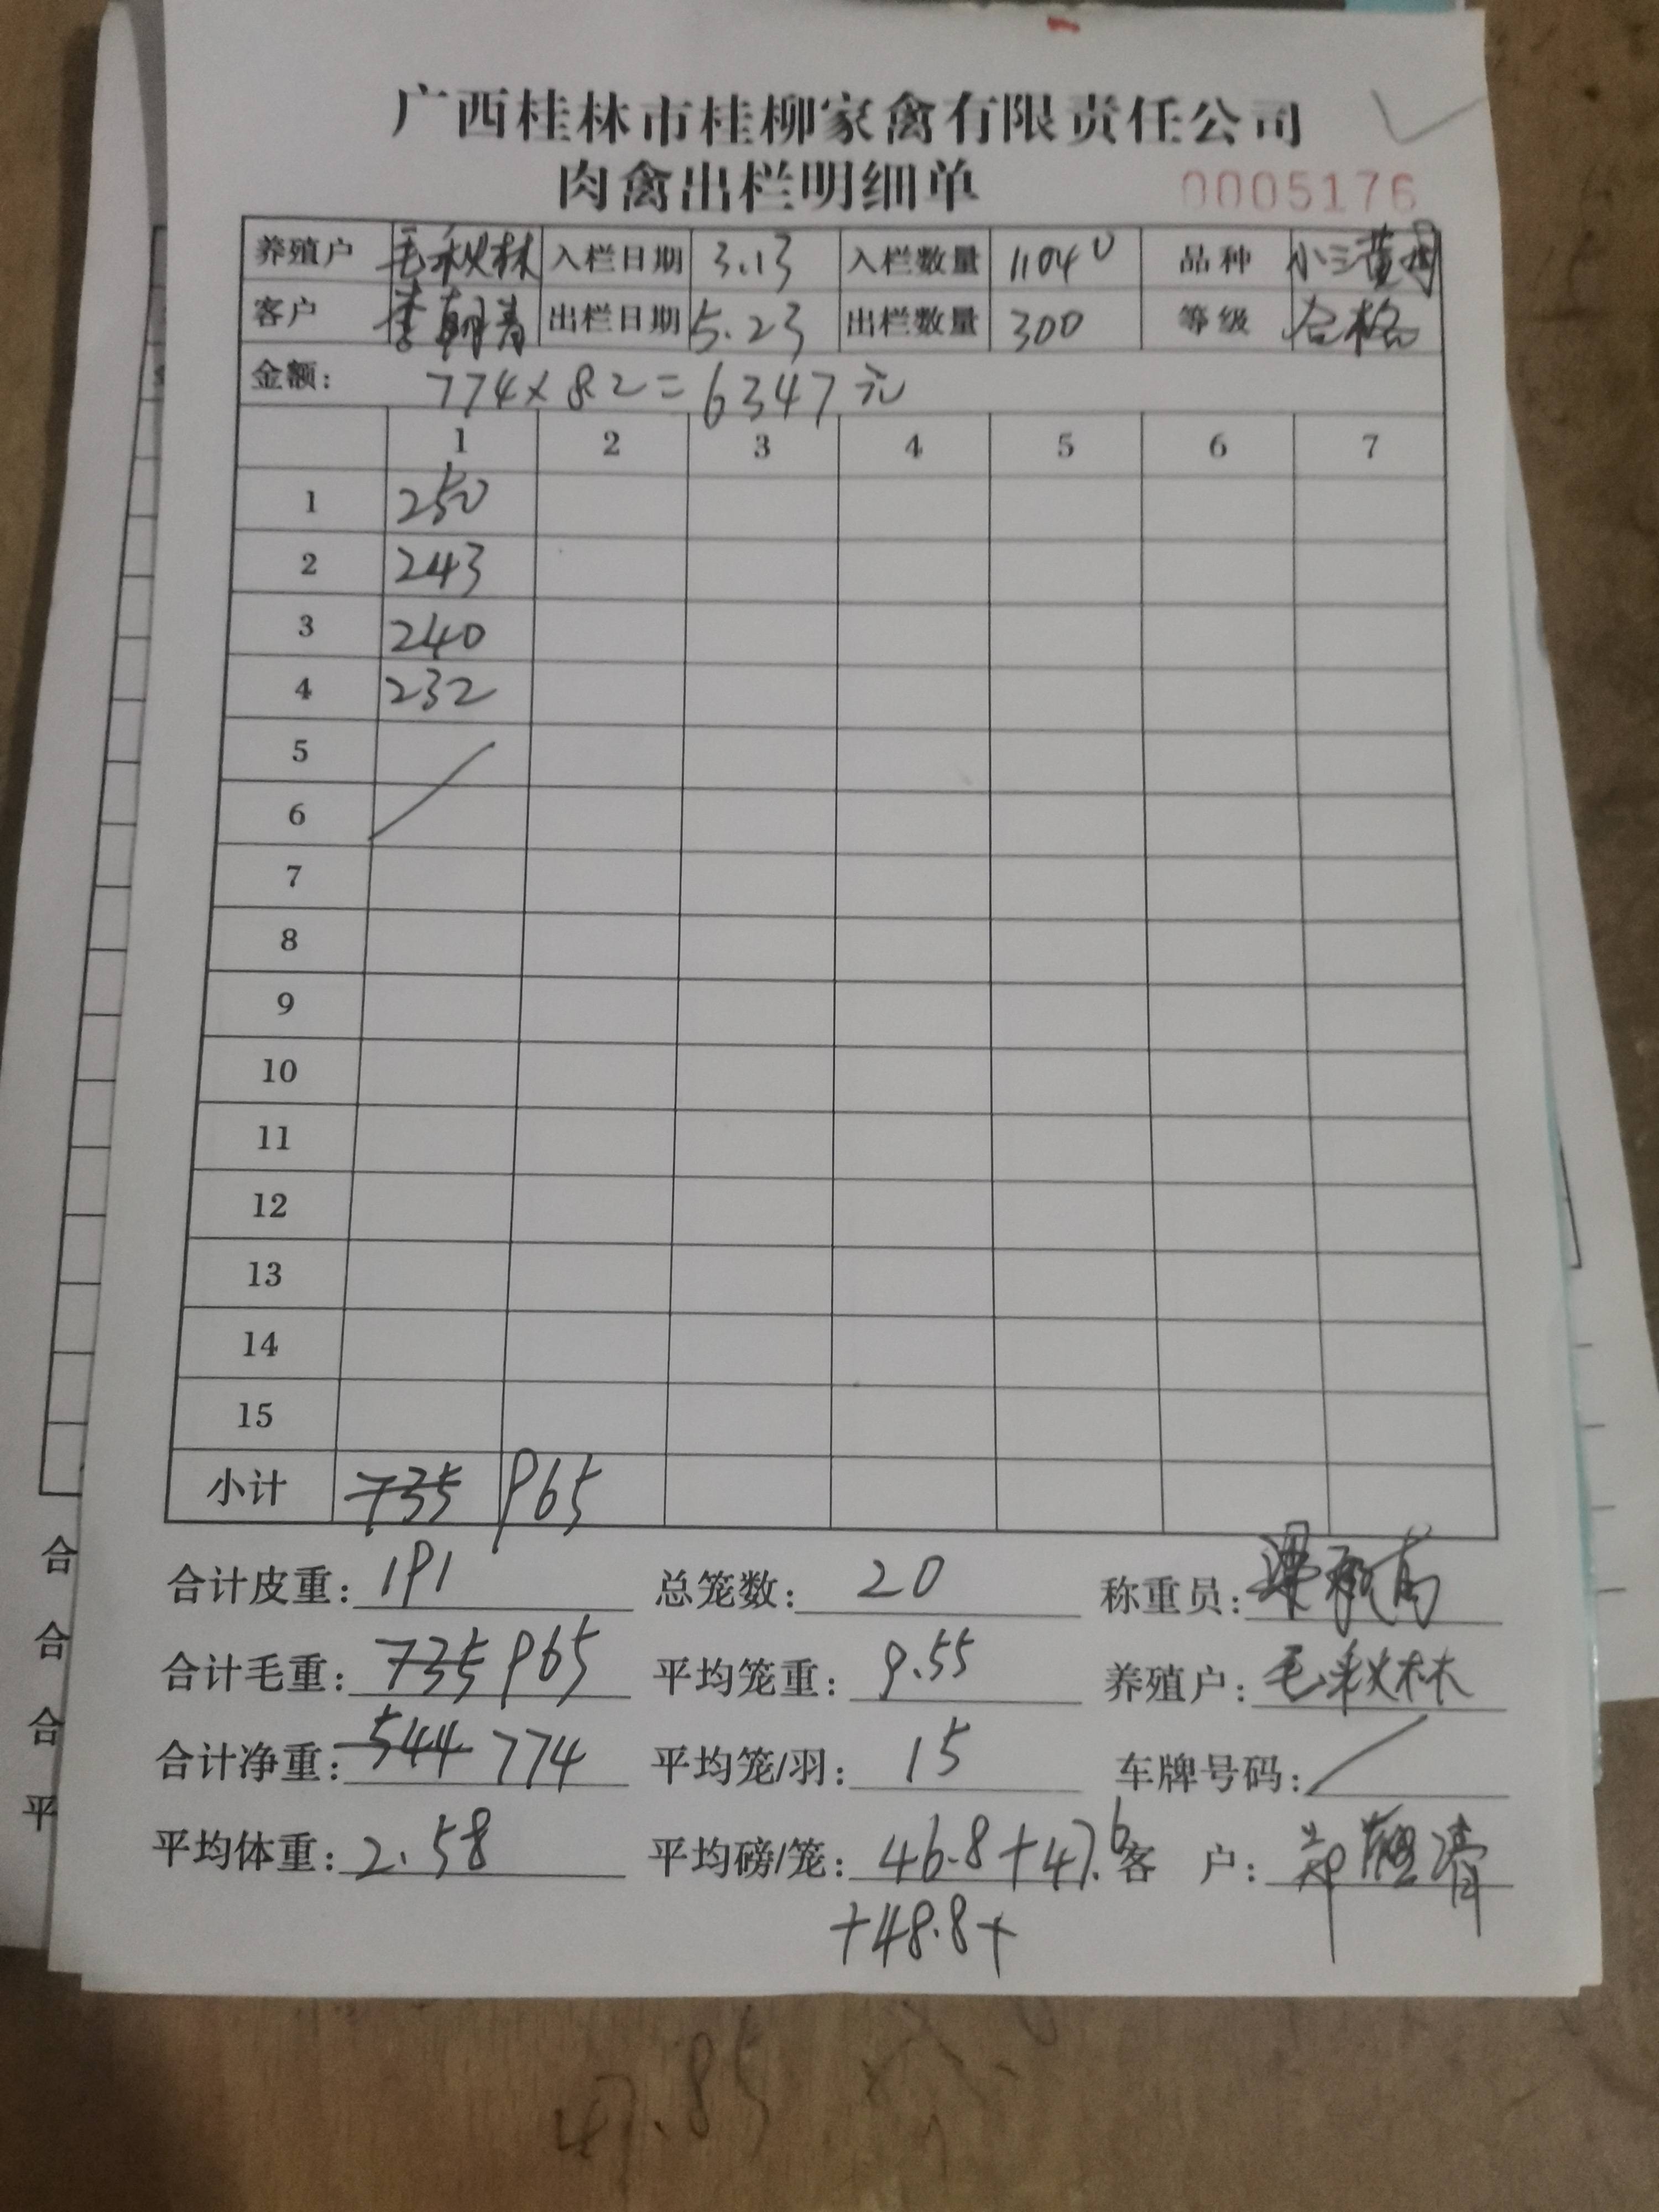 广西桂林市桂柳家禽有限责任公司
肉禽出栏明细单 0005176
养殖户 毛秋林 入栏日期 3.13 入栏数量 11040 品种 小三黄
客户 李朝青 出栏日期 5.23 出栏数量 300 等级 合格
金额: 774×8.2=6347元
1 2 3 4 5 6 7
1 250
2 243
3 240
4 232
5
6
7
8
9
10
11
12
13
14
15
小计 735 965
合计皮重: 191 总笼数: 20 称重员:
合计毛重: 735 965 平均笼重: 9.55 养殖户: 毛秋林
合计净重: 544 774 平均笼/羽: 15 车牌号码:
平均体重: 2.58 平均磅/笼: 46.8+47.6 客 户:
+48.8+
合
合
合
平
47.85